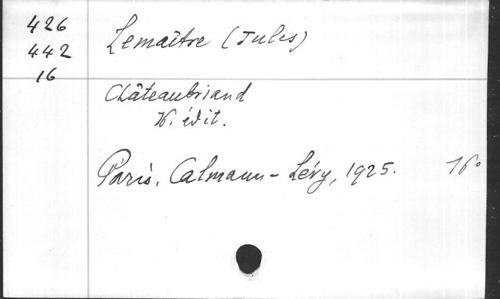 426
442
16
Lemaître (Jules)
Châteaubriand
édit.
Paris, Calmann-Lévy, 1925. 16°